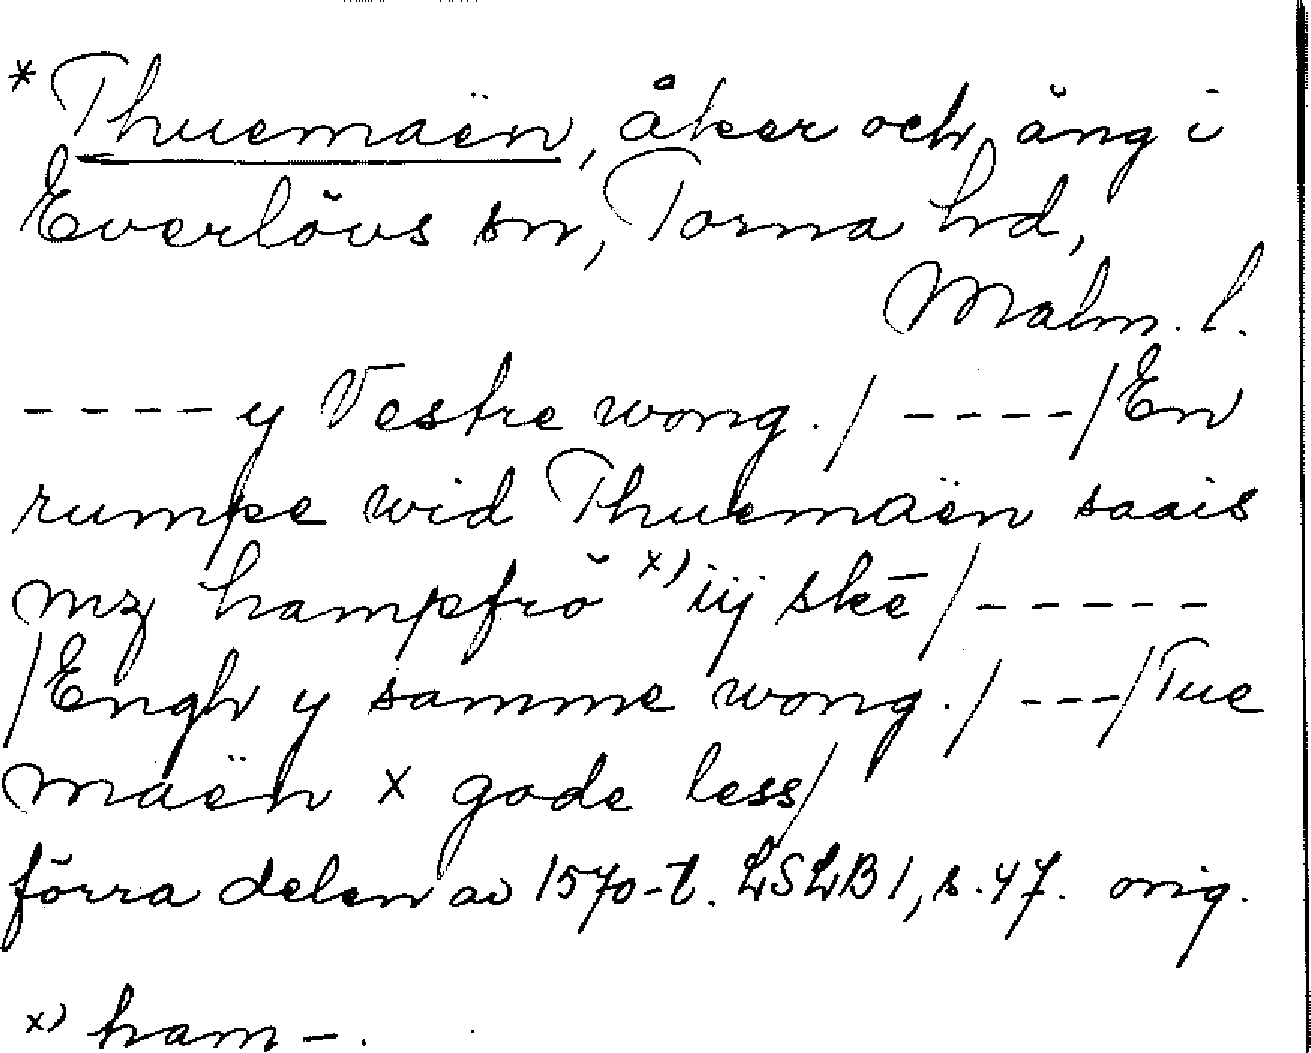 *Thuemaën, åker och äng i
Everlövs sn, Torna hd,
Malm. l.
---- y Vestre wong./ ----/En
rumpe wid Thuemaën saais
mz hampfrö x) iij skē/-----
/Engh y samme wong./ ---/Tue
maën x gode less/
förra delen av 1570-t. LSLB 1, s. 47. orig.
x) ham-.